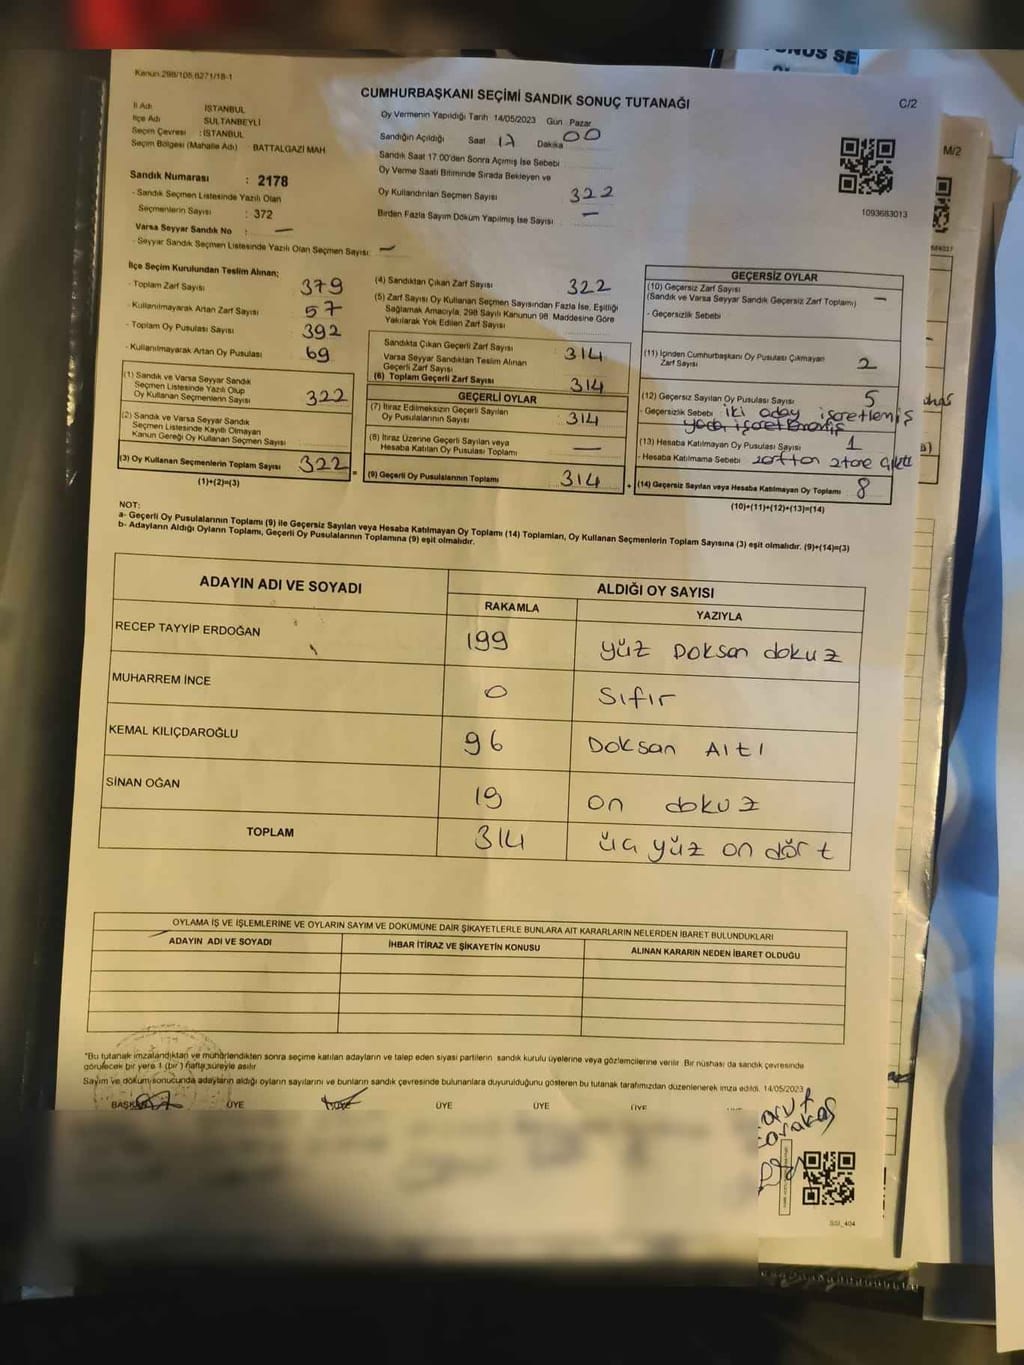 Kanun 298/105,6271/18-1
CUMHURBAŞKANI SEÇİMİ SANDIK SONUÇ TUTANAĞI
C/2
İl Adı İSTANBUL
İlçe Adı SULTANBEYLİ
Seçim Çevresi : İSTANBUL
Seçim Bölgesi (Mahalle Adı) BATTALGAZİ MAH
Sandık Numarası : 2178
- Sandık Seçmen Listesinde Yazılı Olan
Seçmenlerin Sayısı : 372
Varsa Seyyar Sandık No : —
- Seyyar Sandık Seçmen Listesinde Yazılı Olan Seçmen Sayısı: —
Oy Vermenin Yapıldığı Tarih 14/05/2023 Gün Pazar
Sandığın Açıldığı Saat 17 Dakika 00
Sandık Saat 17.00'den Sonra Açılmış İse Sebebi
Oy Verme Saati Bitiminde Sırada Bekleyen ve
Oy Kullandırılan Seçmen Sayısı 322
Birden Fazla Sayım Döküm Yapılmış İse Sayısı —
1093683013
M/2
İlçe Seçim Kurulundan Teslim Alınan;
- Toplam Zarf Sayısı 379
- Kullanılmayarak Artan Zarf Sayısı 57
- Toplam Oy Pusulası Sayısı 392
- Kullanılmayarak Artan Oy Pusulası 69
(1) Sandık ve Varsa Seyyar Sandık
Seçmen Listesinde Yazılı Olup
Oy Kullanan Seçmenlerin Sayısı 322
(2) Sandık ve Varsa Seyyar Sandık
Seçmen Listesinde Kayıtlı Olmayan
Kanun Gereği Oy Kullanan Seçmen Sayısı
(3) Oy Kullanan Seçmenlerin Toplam Sayısı 322
(1)+(2)=(3)
(4) Sandıktan Çıkan Zarf Sayısı 322
(5) Zarf Sayısı Oy Kullanan Seçmen Sayısından Fazla İse, Eşitliği
Sağlamak Amacıyla, 298 Sayılı Kanunun 98. Maddesine Göre
Yakılarak Yok Edilen Zarf Sayısı
Sandıkta Çıkan Geçerli Zarf Sayısı 314
Varsa Seyyar Sandıktan Teslim Alınan
Geçerli Zarf Sayısı
(6) Toplam Geçerli Zarf Sayısı 314
GEÇERLİ OYLAR
(7) İtiraz Edilmeksizin Geçerli Sayılan
Oy Pusulalarının Sayısı 314
(8) İtiraz Üzerine Geçerli Sayılan veya
Hesaba Katılan Oy Pusulası Toplamı —
(9) Geçerli Oy Pusulalarının Toplamı 314
GEÇERSİZ OYLAR
(10) Geçersiz Zarf Sayısı
(Sandık ve Varsa Seyyar Sandık Geçersiz Zarf Toplamı) —
- Geçersizlik Sebebi
(11) İçinden Cumhurbaşkanı Oy Pusulası Çıkmayan
Zarf Sayısı 2
(12) Geçersiz Sayılan Oy Pusulası Sayısı 5
- Geçersizlik Sebebi iki aday işaretlemiş
yada işaretlenmemiş
(13) Hesaba Katılmayan Oy Pusulası Sayısı 1
- Hesaba Katılmama Sebebi zarftan 2 tane çıktı
(14) Geçersiz Sayılan veya Hesaba Katılmayan Oy Toplamı 8
(10)+(11)+(12)+(13)=(14)
NOT:
a- Geçerli Oy Pusulalarının Toplamı (9) ile Geçersiz Sayılan veya Hesaba Katılmayan Oy Toplamı (14) Toplamları, Oy Kullanan Seçmenlerin Toplam Sayısına (3) eşit olmalıdır. (9)+(14)=(3)
b- Adayların Aldığı Oyların Toplamı, Geçerli Oy Pusulalarının Toplamına (9) eşit olmalıdır.
ADAYIN ADI VE SOYADI ALDIĞI OY SAYISI
RAKAMLA YAZIYLA
RECEP TAYYİP ERDOĞAN 199 yüz Doksan dokuz
MUHARREM İNCE 0 Sıfır
KEMAL KILIÇDAROĞLU 96 Doksan Altı
SİNAN OĞAN 19 on dokuz
TOPLAM 314 üç yüz on dört
OYLAMA İŞ VE İŞLEMLERİNE VE OYLARIN SAYIM VE DÖKÜMÜNE DAİR ŞİKAYETLERLE BUNLARA AİT KARARLARIN NELERDEN İBARET BULUNDUKLARI
ADAYIN ADI VE SOYADI İHBAR İTİRAZ VE ŞİKAYETİN KONUSU ALINAN KARARIN NEDEN İBARET OLDUĞU
"Bu tutanak imzalandıktan ve mühürlendikten sonra seçime katılan adayların ve talep eden siyasi partilerin sandık kurulu üyelerine veya gözlemcilerine verilir. Bir nüshası da sandık çevresinde
görülecek bir yere 1 (bir) hafta süreyle asılır
Sayım ve döküm sonucunda adayların aldığı oyların sayılarını ve bunların sandık çevresinde bulunanlara duyurulduğunu gösteren bu tutanak tarafımızdan düzenlenerek imza edildi. 14/05/2023
BAŞKAN ÜYE ÜYE ÜYE ÜYE
SSI_404